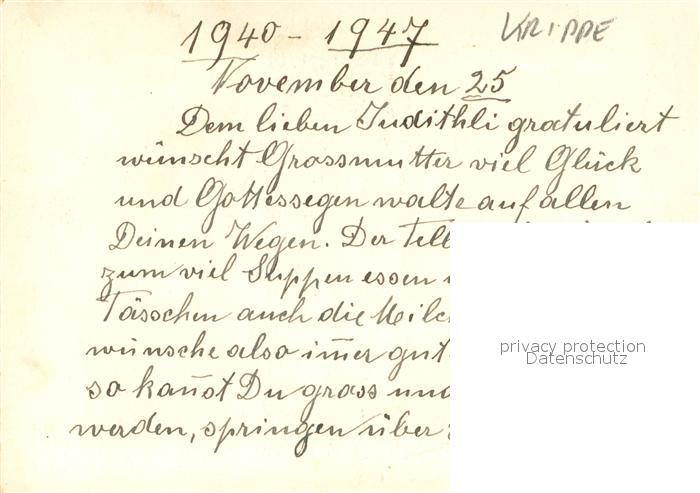 1940 - 1947 KRIPPE
November den 25
Dem lieben Judithli gratuliert
wünscht Grossmutter viel Glück
und Gottessegen walte auf allen
Deinen Wegen. Der
zum viel Suppen essen
Tässchen auch die
wünsche also im̄er gut
so kan̄st Du gross und
werden, springen über
privacy protection
Datenschutz